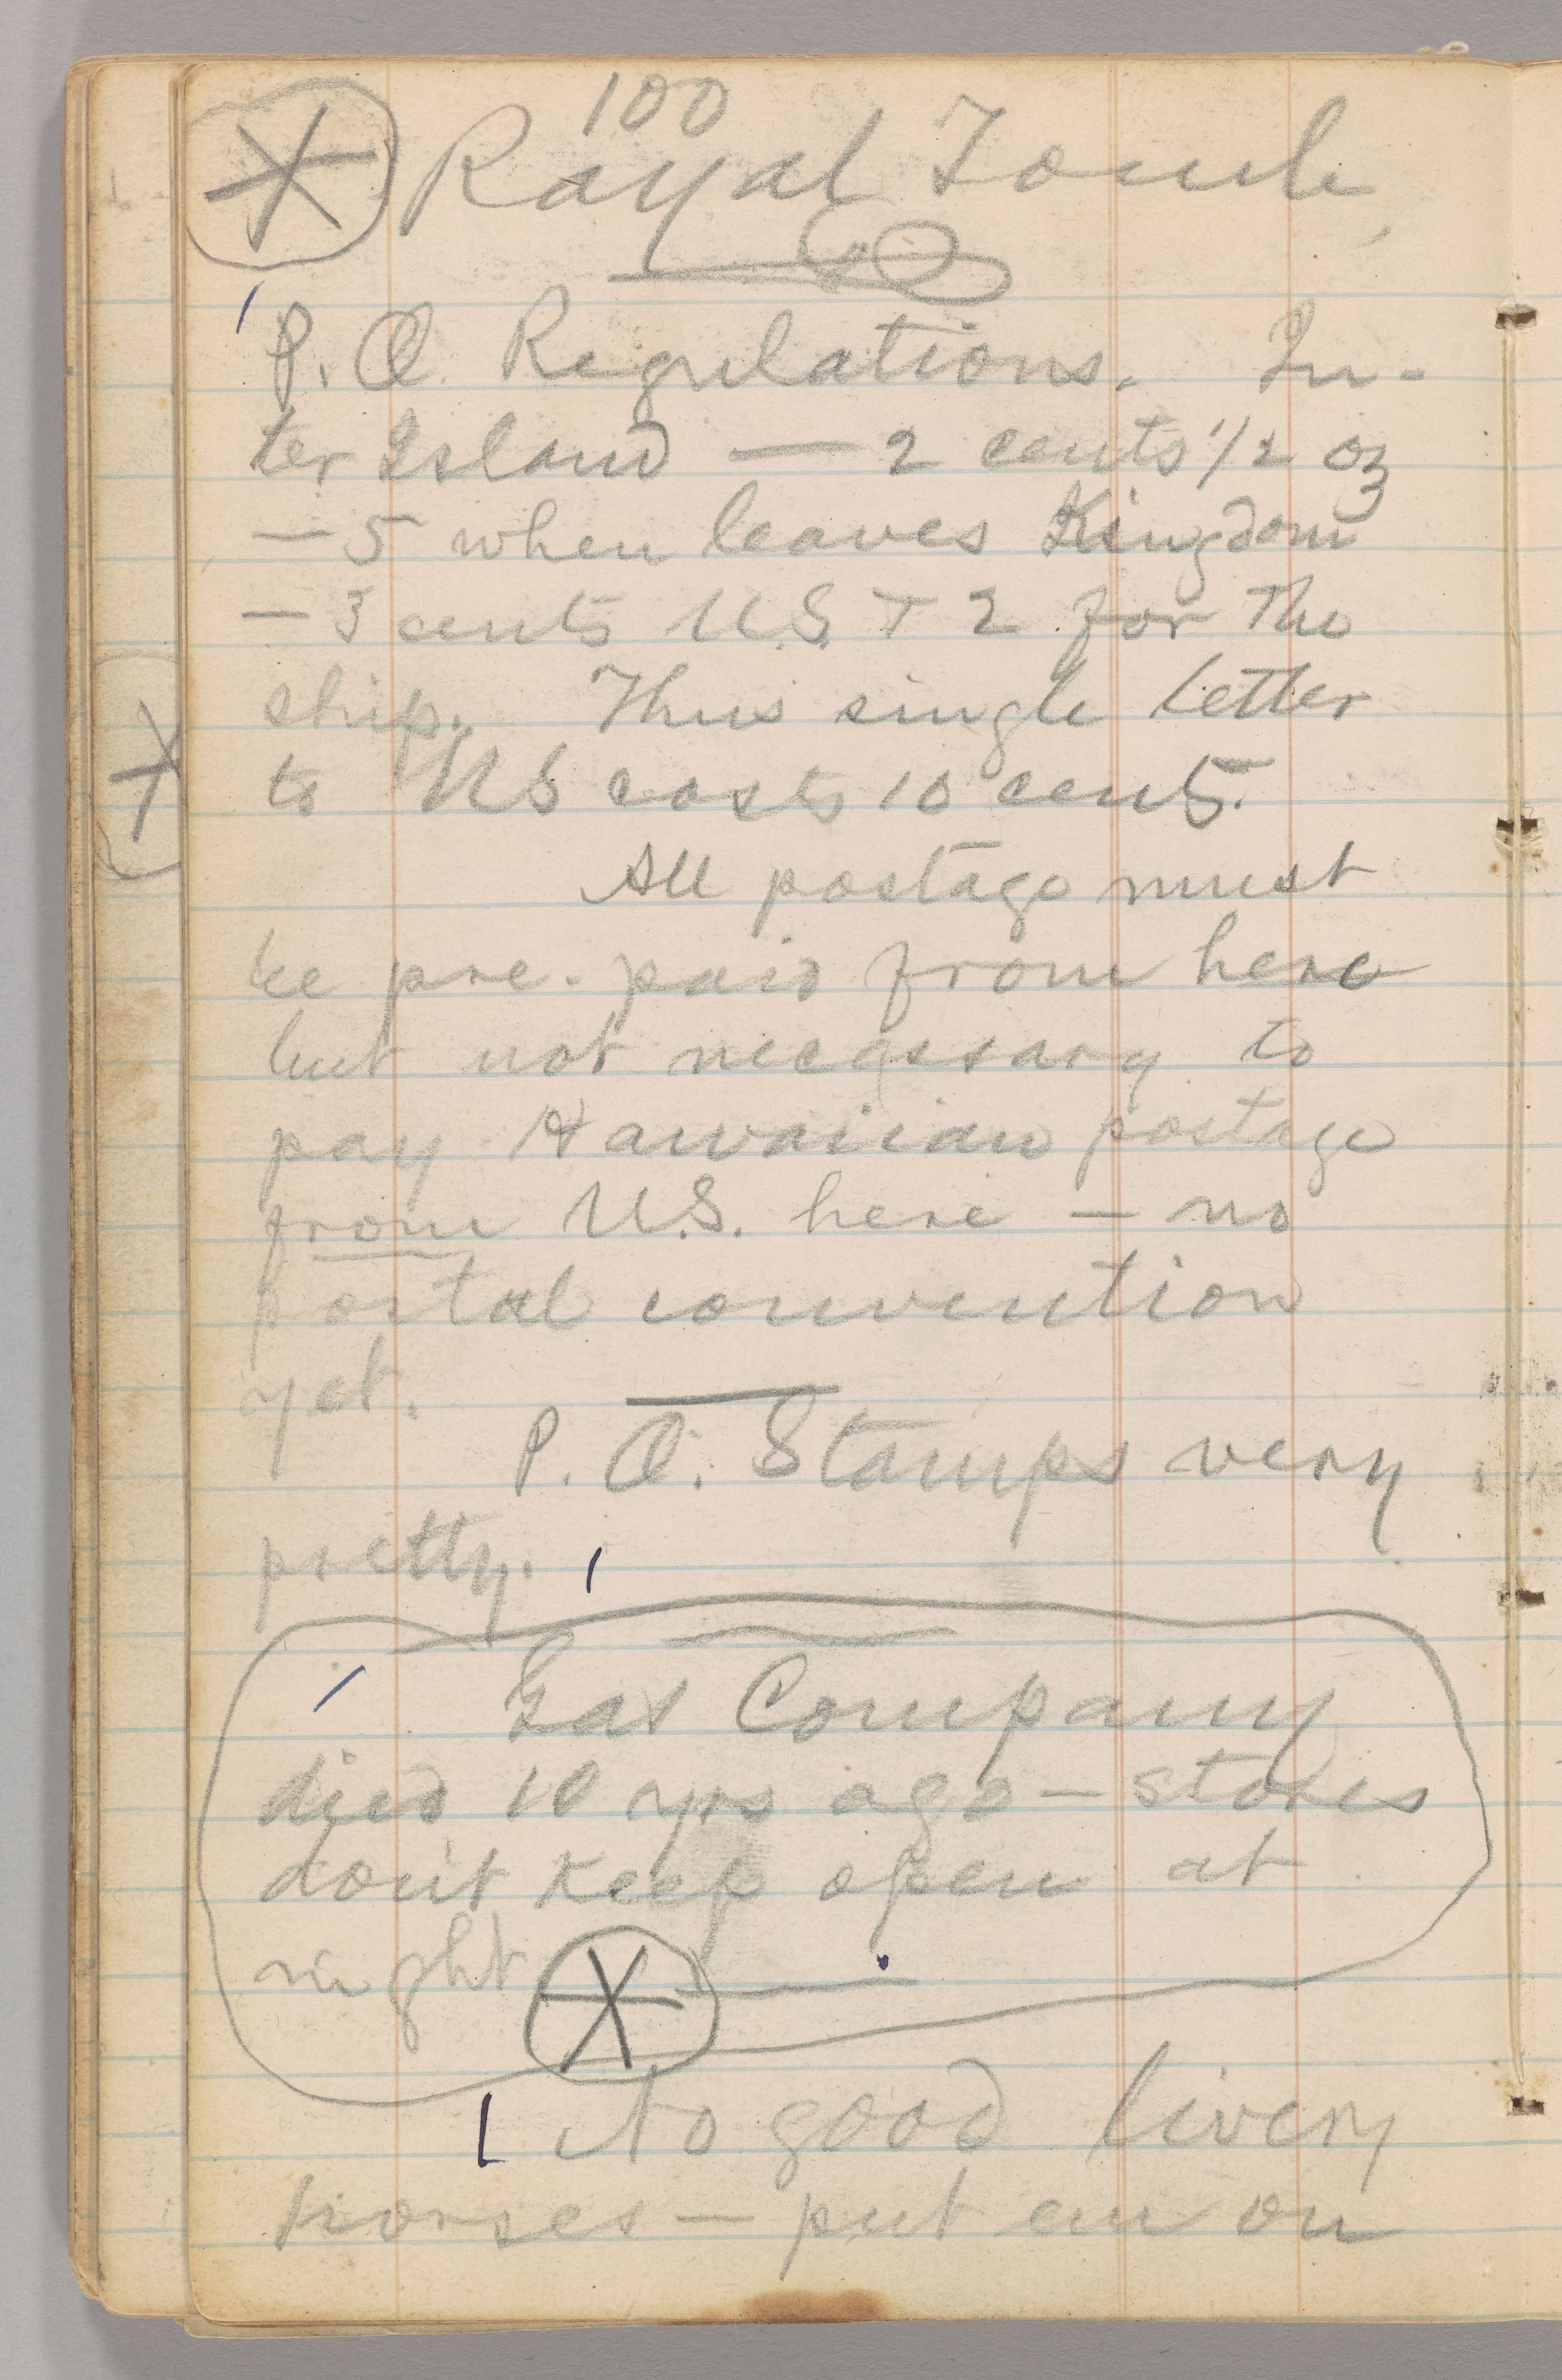 100
Royal Tomb
P. O. Regulations. In-
ter Island — 2 cents 1/2 oz
— 5 when leaves Kingdom
— 3 cents U.S. + 2 for the
ship. Thus single letter
to US costs 10 cents.
All postage must
be pre-paid from here
but not necessary to
pay Hawaiian postage
from U.S. here — no
postal convention
yet.
P. O. Stamps very
pretty.
Gas Company
died 10 yrs ago — stores
don't keep open at
night
No good livery
horses — put em on